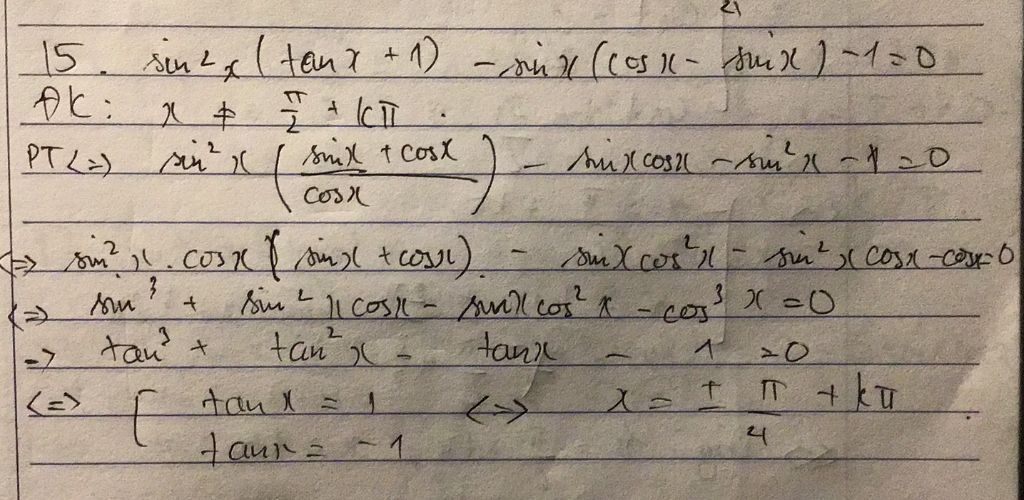 15. sin²x (tanx + 1) - sinx (cosx - sinx) - 1 = 0
ĐK: x ≠ π/2 + kπ.
PT <=> sin²x ((sinx + cosx)/cosx) - sinxcosx - sin²x - 1 = 0
<=> sin²x.cosx (sinx + cosx) - sinxcos²x - sin²xcosx - cosx = 0
<=> sin³ + sin²xcosx - sinxcos²x - cos³x = 0
-> tan³ + tan²x - tanx - 1 = 0
<=> [ tanx = 1 <=> x = ± π/4 + kπ.
tanx = -1